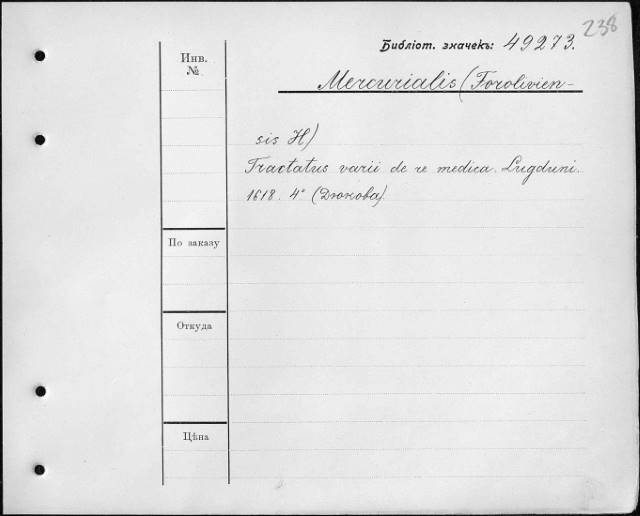 238
Библіот. значекъ: 49273.
Инв.
№
Mercurialis (Forolivien-
sis H)
Tractatus varii de re medica. Lugduni.
1618. 4° (Дюкова).
По заказу
Откуда
Цѣна